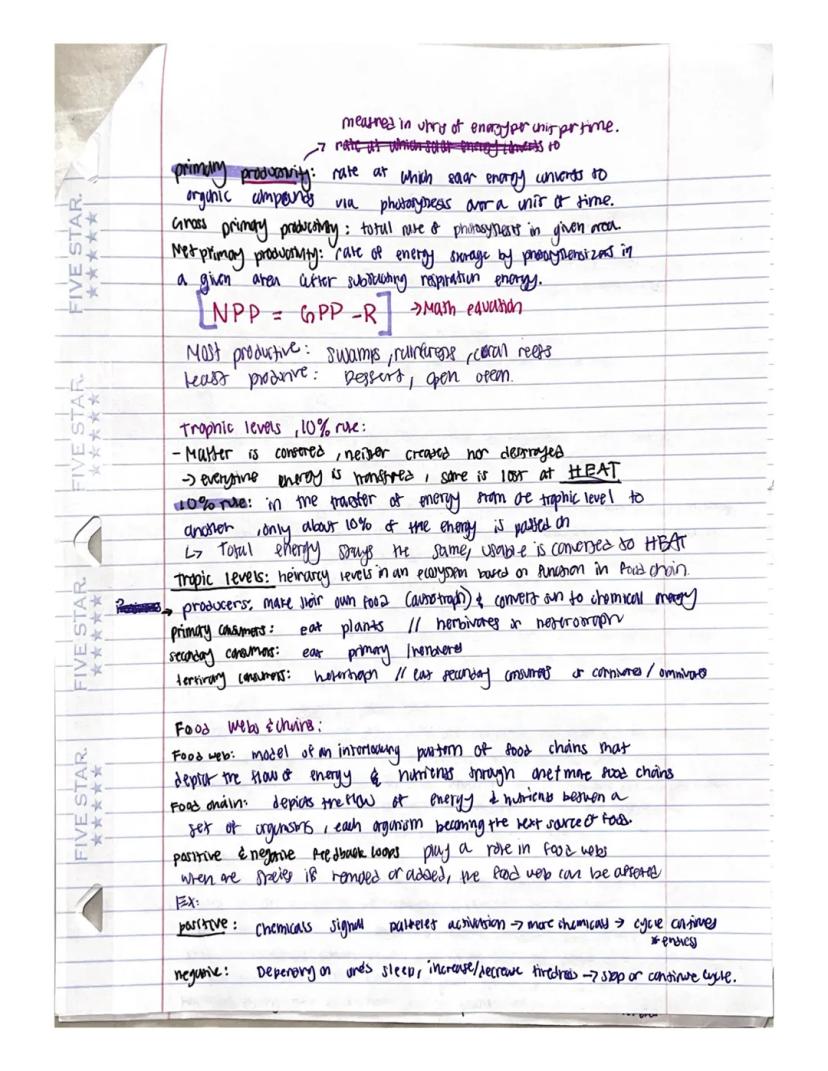 measured in units of energy per unit per time.
rate at which solar energy converts to
primary productivity: rate at which solar energy converts to
organic compounds via photosynthesis over a unit of time.
Gross primary productivity: total rate of photosynthesis in given area.
Net primary productivity: rate of energy storage by photosynthesizers in
a given area after subtracting respiration energy.
[NPP = GPP - R] → Math equation
Most productive: swamps, rainforests, coral reefs
Least productive: Dessert, open ocean.
Trophic levels, 10% rule:
- Matter is conserved, neither created nor destroyed
→ everytime energy is transfred, some is lost at HEAT
10% rule: in the transfer of energy from one trophic level to
another, only about 10% of the energy is passed on
↳ Total energy stays the same, usable is converted to HEAT
Tropic levels: heirarcy levels in an ecosystem based on function in food chain.
→ producers: make their own food (autotroph) & convert sun to chemical energy
primary consumers: eat plants // herbivores or heterotroph
secondary consumers: eat primary / herbivores
tertiary consumers: heterotroph // eat secondary consumers or carnivores / omnivores
Food webs & chains:
Food web: model of an interlocking pattern of food chains that
depict the flow of energy & nutrients through one+ more food chains
Food chain: depicts the flow of energy & nutrients between a
set of organisms, each organism becoming the next source of food.
positive & negative feedback loops play a role in food webs
when one species is removed or added, the food web can be affected
EX:
positive: chemicals signal activation → more chemicals → cycle continues
* endless
negative: Depending on ones sleep, increase/decrease tiredness → stop or continue cycle.
FIVE STAR.
FIVE STAR.
FIVE STAR.
FIVE STAR.